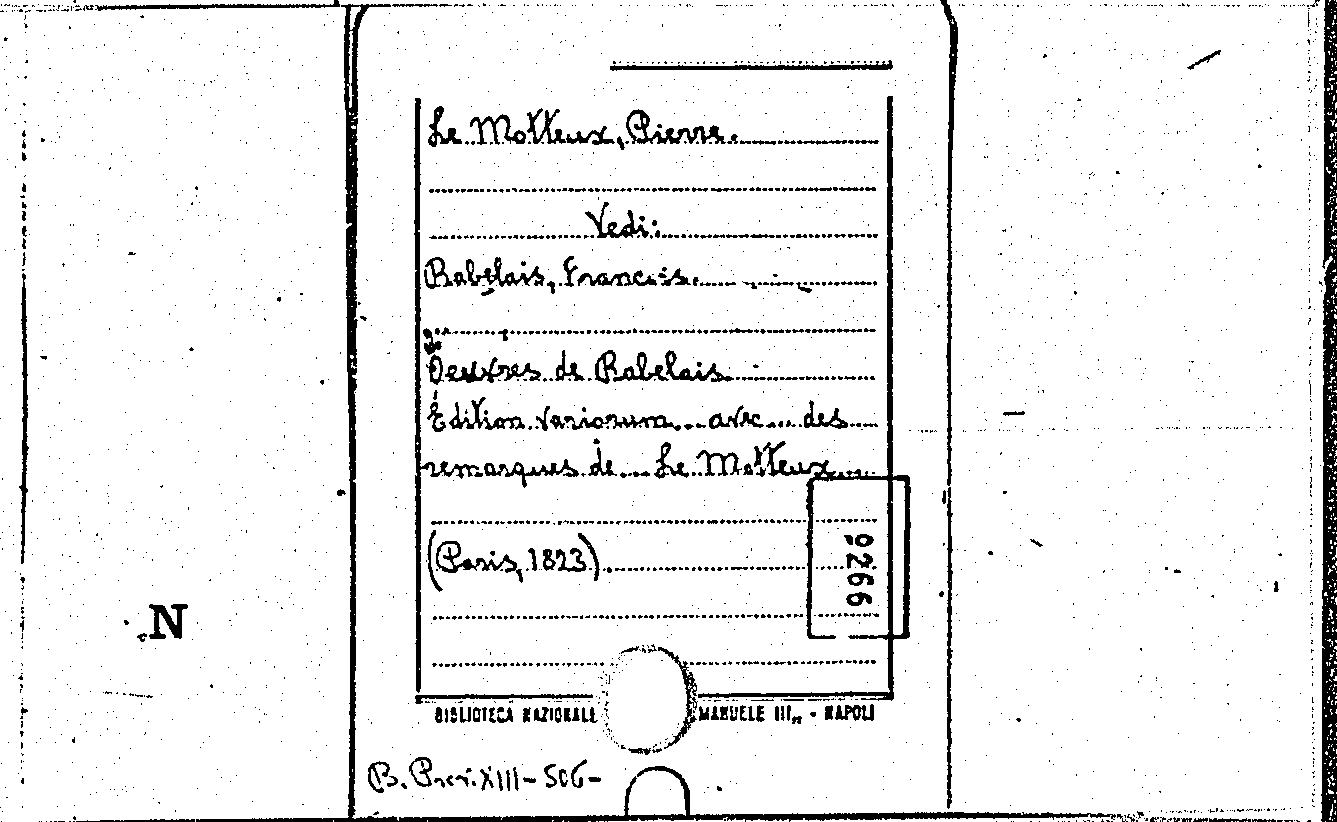 Le Motteux, Pierre.
Vedi:
Rabelais, Francois.
Oeuvres de Rabelais
Édition variorum... avec... des
remarques de... Le Motteux...
(Paris, 1823).
9266
BIBLIOTECA NAZIONALE MANUELE III„ - NAPOLI
N
B. XIII-